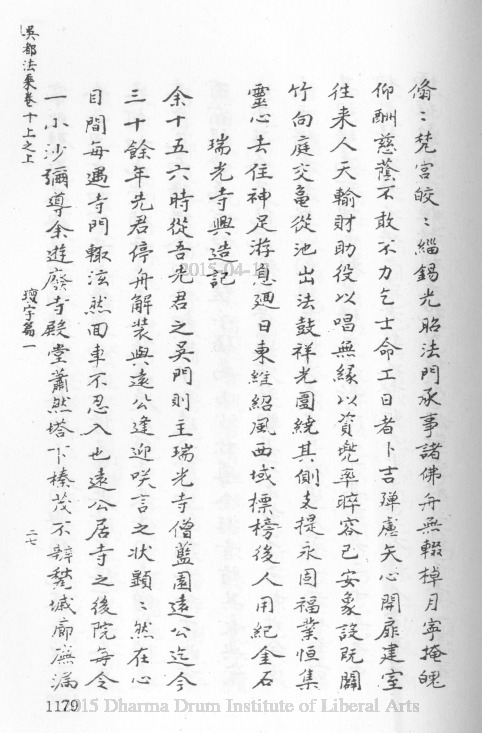 翛〻梵宮皎〻緇錫光昭法門承事諸佛舟無輟棹月寧掩魄
仰酬慈蔭不敢不力乞士命工日者卜吉殫慮矢心開扉建室
往来人天輸財助役以唱無緣以資兜率晬容已安象設既闢
竹向庭交龜從池出法鼓祥光圍繞其側支提永固福業恒集
靈心去住神足游息迺日東維紹風西域標榜後人用紀金石
瑞光寺興造記
余十五六時從吾先君之吳門則主瑞光寺僧藍園遠公迄今
三十餘年先君停舟解装與遠公逢迎咲言之狀顯〻然在心
目間每遇寺門輙泫然回車不忍入也遠公居寺之後院每令
一小沙彌導余遊廢寺殿堂蕭然塔下榛茂不辨甃墄廊廡漏
吳都法乗卷十上之上
壇宇篇一
二七
1179
2015-04-1
2015 Dharma Drum Institute of Liberal Arts